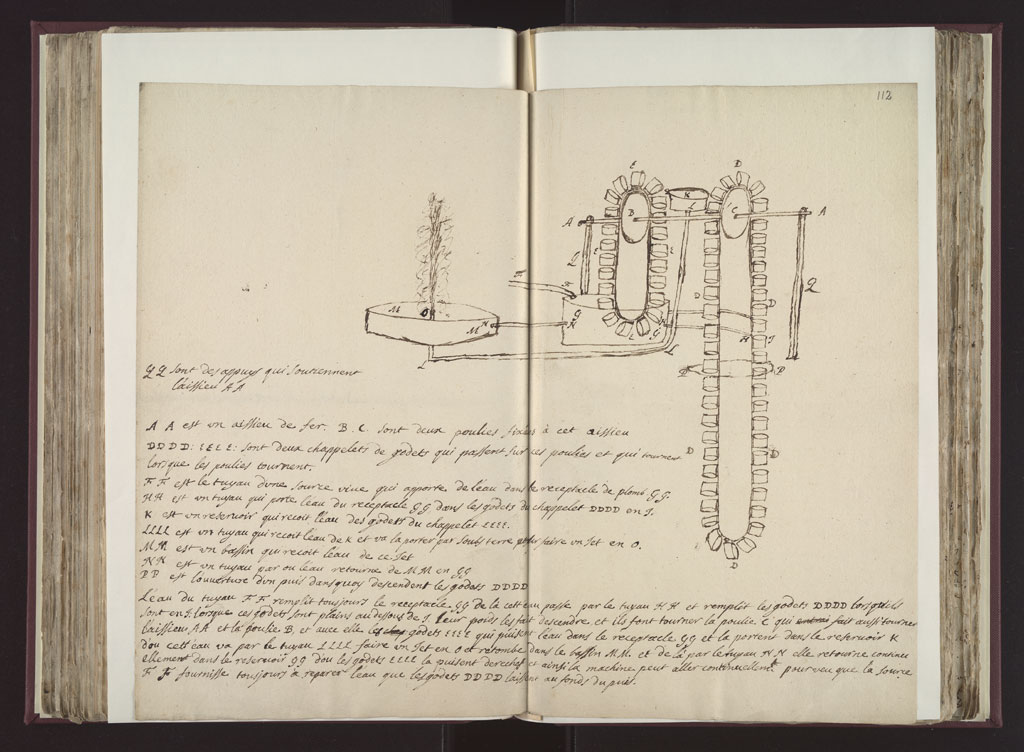 112
E
D
A
B
K
C
A
L
Q
E
E
Q
F
F
M
O
M
N
G
N
E
G
D
D
H
I
L
L
P
P
D
D
D
QQ sont des appuys qui soutiennent
l'aissieu AA
A A est un aissieu de fer. B. C. sont deux poulies fixées à cet aissieu
DDDD: EEEE: sont deux chappelets de godets qui passent sur ces poulies et qui tournent
lorsque les poulies tournent.
FF est le tuyau d'une source vive qui apporte de l'eau dans le receptacle de plomb GG.
HH est un tuyau qui porte l'eau du receptacle GG dans les godets du chappelet DDDD en I.
K est un reservoir qui reçoit l'eau des godets du chappelet EEEE.
LLLL est un tuyau qui reçoit l'eau de K et va la porter par soubs terre pour faire un Jet en O.
MM. est un bassin qui reçoit l'eau de ce Jet
NN est un tuyau par ou l'eau retourne de MM en GG
PP est l'ouverture d'un puis dans quoy descendent les godets DDDD
L'eau du tuyau FF remplit tousjours le receptacle GG de la cett eau passe par le tuyau HH et remplit les godets DDDD lorsquils
sont en I. lorsque ces godets sont plains au dessous de I leur poids les fait descendre, et ils font tourner la poulie C qui fait aussi tourner
l'aissieu AA et la poulie B, et avec elle les godets EEEE qui puisent l'eau dans le receptacle GG et la portent dans le reservoir K
d'ou cett eau va par le tuyau LLLL faire un Jet en O et retombe dans le bassin MM. et de la par le tuyau NN elle retourne continu
ellement dans le reservoir GG d'ou les godets EEEE la puisent derechef et ainsi la machine peut aller continuellemt. pourveu que la source
FF fournisse tousjours à reparer l'eau que les godets DDDD laissent au fonds du puis.